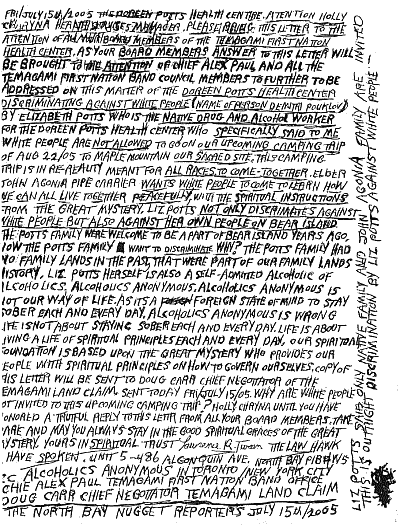 FRI/JULY 15th/2005 THE DOREEN POTTS HEALTH CENTRE. ATENTION HOLLY
CHAYNA HEALTH SERVICES MANAGER, PLEASE BRING THIS LETTER TO THE
ATTENTION OF ALL YOUR BOARD MEMBERS OF THE TEMAGAMI FIRST NATION
HEALTH CENTER. AS YOUR BOARD MEMBERS ANSWER TO THIS LETTER WILL
BE BROUGHT TO THE ATTENTION OF CHIEF ALEX PAUL AND ALL THE
TEMAGAMI FIRST NATION BAND COUNCIL MEMBERS TO FURTHER TO BE
ADDRESSED ON THIS MATTER OF THE DOREEN POTTS HEALTH CENTER
DISCRIMINATING AGAINST WHITE PEOPLE (NAME OF PERSON DEMITRI POURKLOV)
BY ELIZABETH POTTS WHO IS THE NATIVE DRUG AND ALCOHOL WORKER
FOR THE DOREEN POTTS HEALTH CENTER WHO SPECIFICALLY SAID TO ME
WHITE PEOPLE ARE NOT ALLOWED TO GO ON OUR UPCOMING CAMPING TRIP
OF AUG 22/05 TO MAPLE MOUNTAIN OUR SACRED SITE, THIS CAMPING
TRIP IS IN REALITY MEANT FOR ALL RACES TO COME-TOGETHER. ELDER
JOHN AGONIA PIPE CARRIER WANTS WHITE PEOPLE TO COME TO LEARN HOW
WE CAN ALL LIVE TOGETHER PEACEFULLY, WITH THE SPIRITUAL INSTRUCTIONS
FROM THE GREAT MYSTERY. LIZ POTTS NOT ONLY DISCRIMATES AGAINST
WHITE PEOPLE BUT ALSO AGAINST HER OWN PEOPLE ON BEAR ISLAND
THE POTTS FAMILY WERE WELCOME TO BE APART OF BEAR ISLAND YEARS AGO,
HOW THE POTTS FAMILY WANT TO DISCRIMINATE WHY? THE POTTS FAMILY HAD
NO FAMILY LANDS IN THE PAST, THAT WERE PART OF OUR FAMILY LANDS
HISTORY. LIZ POTTS HERSELF IS ALSO A SELF-ADMITED ALCOHOLIC OF
ALCOHOLICS. ALCOHOLICS ANONYMOUS. ALCOHOLICS ANONYMOUS IS
NOT OUR WAY OF LIFE. AS ITS A FOREIGN STATE OF MIND TO STAY
SOBER EACH AND EVERY DAY. ALCOHOLICS ANONYMOUS IS WRONG
LIFE IS NOT ABOUT STAYING SOBER EACH AND EVERY DAY. LIFE IS ABOUT
LIVING A LIFE OF SPIRITUAL PRINCIPLES EACH AND EVERY DAY. OUR SPIRITUAL
FOUNDATION IS BASED UPON THE GREAT MYSTERY WHO PROVIDES OUR
PEOPLE WITH SPIRITUAL PRINCIPLES ON HOW TO GOVERN OURSELVES. COPY OF
THIS LETTER WILL BE SENT TO DOUG CARR CHIEF NEGOTIATOR OF THE
TEMAGAMI LAND CLAIM. SENT TODAY FRI/JULY 15/05. WHY ARE WHITE PEOPLE
NOT INVITED TO THIS UPCOMING CAMPING TRIP? HOLLY CHAYNA UNTIL YOU HAVE
HONORED A TRUTHFUL REPLY TO THIS LETTER FROM ALL YOUR BOARD MEMBERS, TAKE
CARE AND MAY YOU ALWAYS STAY IN THE GOOD SPIRITUAL GRACES OF THE GREAT
MYSTERY. YOURS IN SPIRITUAL TRUST THE LAW HAWK
HAVE SPOKEN. UNIT 5-486 ALGONQUIN AVE. NORTH BAY P1B4W5
CC ALCOHOLICS ANONYMOUS IN TORONTO/NEW YORK CITY
CHIEF ALEX PAUL TEMAGAMI FIRST NATION BAND OFFICE
DOUG CARR CHIEF NEGOTIATOR TEMAGAMI LAND CLAIM
THE NORTH BAY NUGGET REPORTERS JULY 15th/2005
LIZ POTTS SAYS ONLY NATIVE FAMILY AND JOHN AGONIA FAMILY ARE INVITED
THIS IS OUTRIGHT DISCRIMINATION BY LIZ POTTS AGAINST WHITE PEOPLE—